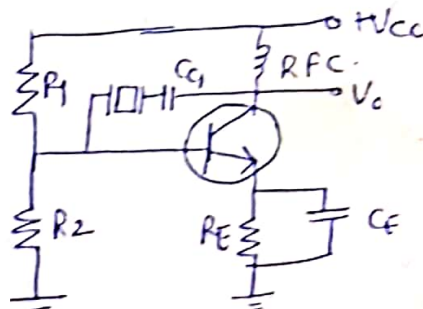 +VCC
R1
CC1
RFC.
Vo
R2
RE
CE